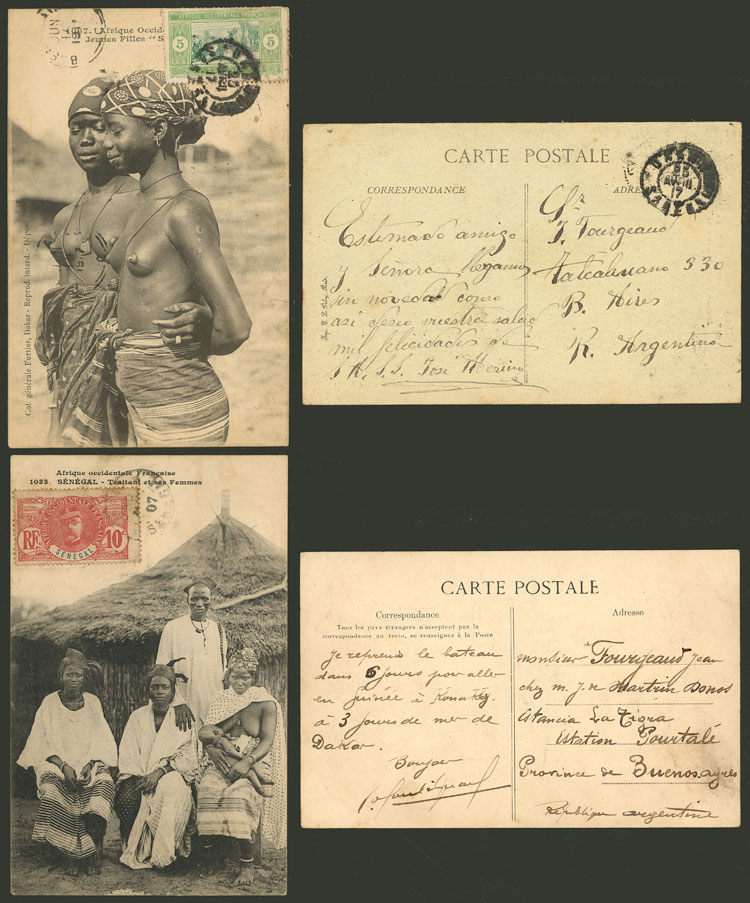 1087. Afrique Occid
Jeunes Filles "S
AFRIQUE OCCIDENTALE FRANÇAISE
5
5
Col. générale Fortier, Dakar - Reprod. interd.
CARTE POSTALE
CORRESPONDANCE
ADRE
Estimado amigo
y Señora llegamos
sin novedad como
asi deseo vuestra salud
mil felicidades de
S. S. José Merino
Sr
J. Fourgeaud
Talcahuano 330
B. Aires
R. Argentina
17
Afrique occidentale Française
1033. SÉNÉGAL - Traitant et ses Femmes
RF
SÉNÉGAL
10c
07
CARTE POSTALE
Correspondance
Tous les pays étrangers n'acceptent pas la
correspondance au recto, se renseigner à la Poste
Je reprends le bateau
dans 6 jours pour aller
en Guinée à Konakry
à 3 jours de mer de
Dakar.
Bonjour
Adresse
Monsieur Fourgeaud Jean
chez M. J. de Martrin Donos
Estancia La Tigra
Estation Pourtalé
Province de Buenos ayres
République argentine